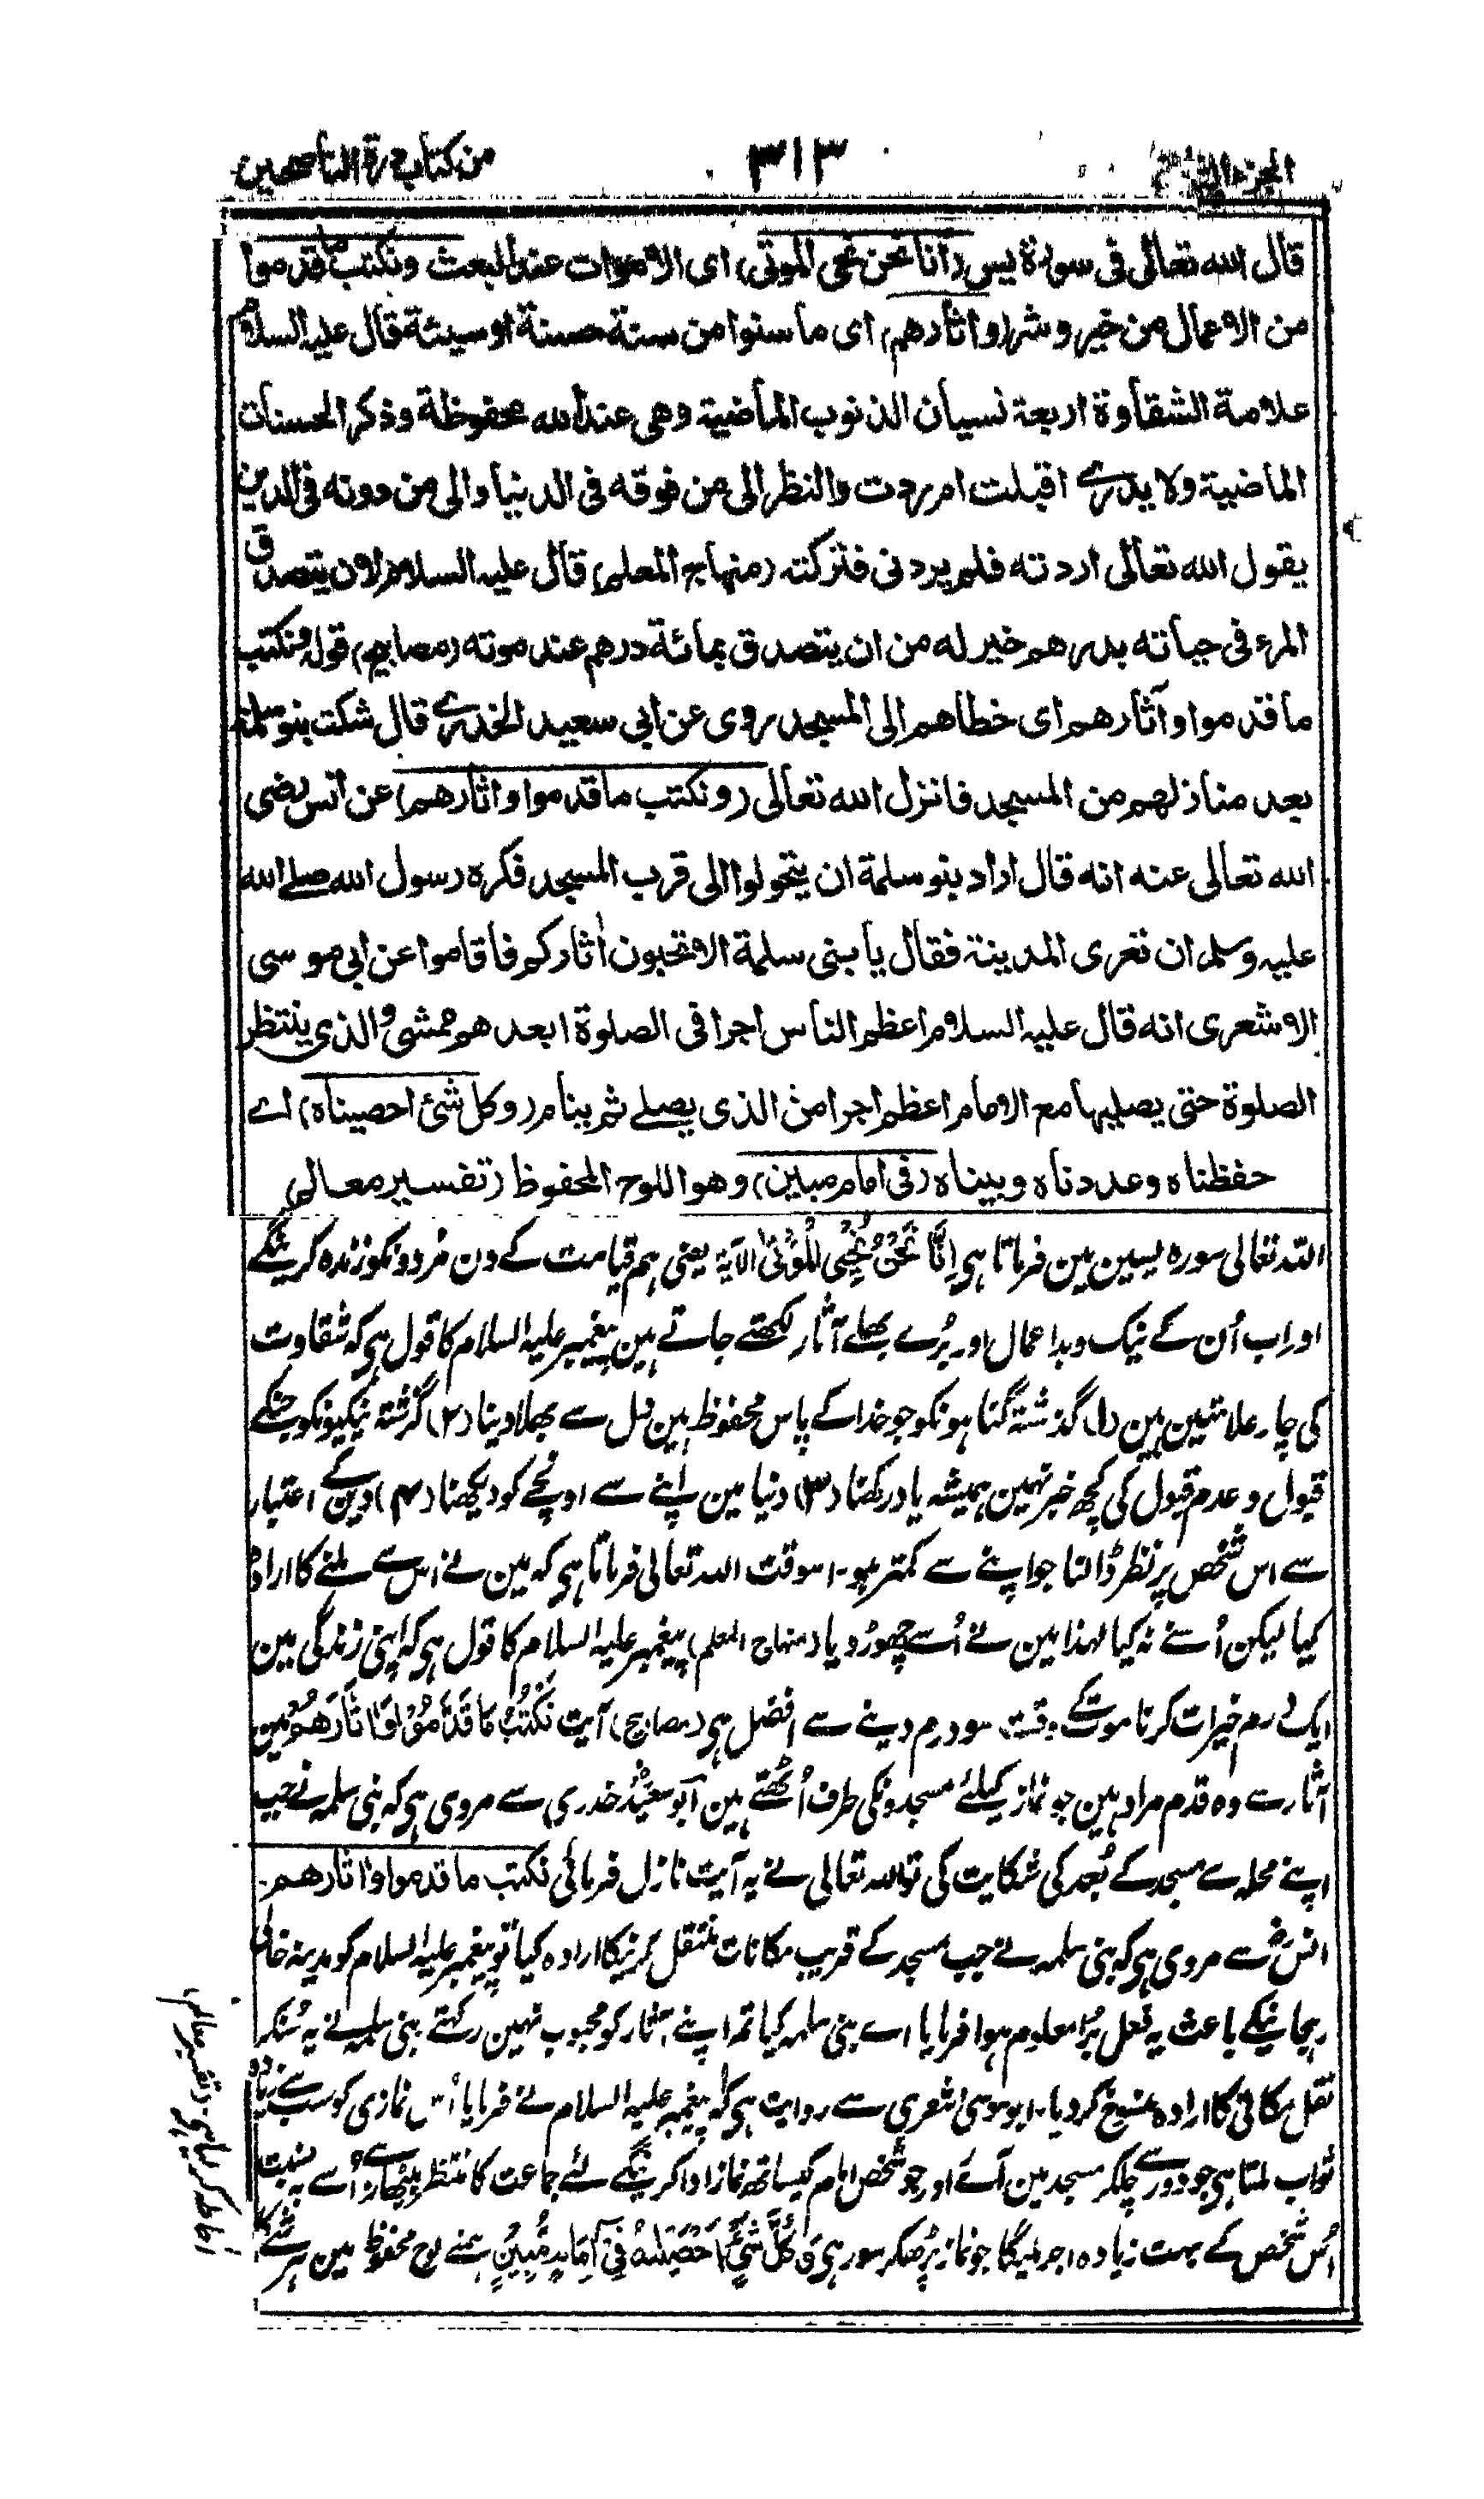 من كتاب درة الناصحين
٣١٣
قال الله تعالى فى سورة يس (انا نحن نحى الموتى) اى الاموات عند البعث ونكتب ما قدموا
من الاعمال من خير وشر (واثارهم) اى ما سنوا من سنة حسنة او سيئة قال عليه السلام
علامة الشقاوة اربعة نسيان الذنوب الماضية وهى عند الله محفوظة وذكر الحسنات
الماضية ولا يدرے اقبلت ام ردت والنظر الى من فوقه فى الدنيا والى من دونه فى الدين
يقول الله تعالى اردته فلم يردنى فتركته (منهاج المعلم) قال عليه السلام لان يتصدق
المرء فى حياته بدرهم خير له من ان يتصدق بمائة درهم عند موته (مصابيح) قوله ونكتب
ما قدموا وآثارهم اى خطاهم الى المسجد روى عن ابى سعيد الخدرے قال شكت بنو سلمة
بعد منازلهم من المسجد فانزل الله تعالى (ونكتب ما قدموا واثارهم) عن انس رضى
الله تعالى عنه انه قال اراد بنو سلمة ان يتحولوا الى قرب المسجد فكره رسول الله صلے الله
عليه وسلم ان تعرى المدينة فقال يا بنى سلمة الا تحبون اثاركم فاقاموا عن ابى موسى
الاشعرى انه قال عليه السلام اعظم الناس اجرا فى الصلوة ابعدهم ممشى والذى ينتظر
الصلوة حتى يصليها مع الامام اعظم اجرا من الذى يصلے ثم ينام (وكل شئ احصيناه) اے
حفظناه وعددناه وبيناه (فى امام مبين) وهو اللوح المحفوظ (تفسير معالم)
اللہ تعالی سورہ یسین مین فرماتا ہی اِنَّا نَحْنُ نُحْيِى الْمَوْتٰى الآیۃ یعنی ہم قیامت کے دن مُردونکو زندہ کرینگے
اور اب اُن کے نیک وبد اعمال اور بُرے بھلے آثار لکھتے جاتے ہین پیغمبر علیہ السلام کا قول ہی کہ شقاوت
کی چار علامتین ہین (۱) گذشتہ گناہونکو جو خدا کے پاس محفوظ ہین دل سے بھلا دینا (۲) گزشتہ نیکیونکو جنکے
قبول وعدم قبول کی کچھ خبر نہین ہمیشہ یاد رکھنا (۳) دنیا مین اپنے سے اونچے کو دیکھنا (۴) دین کے اعتبار
سے اس شخص پر نظر ڈالنا جو اپنے سے کمتر ہو۔ اسوقت اللہ تعالی فرماتا ہی کہ مین نے اس سے ملنے کا ارادہ
کیا لیکن اُسنے نہ کیا لہذا مین نے اُسے چھوڑ دیا (منہاج المعلم) پیغمبر علیہ السلام کا قول ہی کہ اپنی زندگی مین
ایک درہم خیرات کرنا موت کے وقت سو درم دینے سے افضل ہی (مصابیح) آیت نَكْتُبُ مَا قَدَّمُوْا وَاٰثَارَهُمْ مین
آثار سے وہ قدم مراد ہین جو نماز کیلئے مسجدونکی طرف اُٹھتے ہین ابو سعید خدری سے مروی ہی کہ بنی سلمہ نے جب
اپنے محلہ سے مسجد کے بُعد کی شکایت کی تو اللہ تعالی نے یہ آیت نازل فرمائی نكتب ما قدموا واثارهم۔
انس سے مروی ہی کہ بنی سلمہ نے جب مسجد کے قریب مکانات منتقل کرنیکا ارادہ کیا تو پیغمبر علیہ السلام کو مدینہ خالی
رہجانیکے باعث یہ فعل بُرا معلوم ہوا فرمایا اے بنی سلمہ کیا تم اپنے آثار کو محبوب نہین رکھتے بنی سلمہ نے یہ سُنکر
نقل مکانی کا ارادہ فسخ کردیا۔ ابو موسی اشعری سے روایت ہی کہ پیغمبر علیہ السلام نے فرمایا اُس نمازی کو سب سے زیادہ
ثواب ملتا ہی جو دور سے چلکر مسجد مین آئے اور جو شخص امام کیساتھ نماز ادا کرینگے لئے جماعت کا منتظر بیٹھا رہے اُسے بہ نسبت
اُس شخص کے بہت زیادہ اجر ملیگا جو نماز پڑھکر سو رہی وَكُلَّ شَىْءٍ اَحْصَيْنٰهُ فِىْ اِمَامٍ مُّبِيْنٍ ہمنے لوح محفوظ مین ہر شے کا
احاطہ کر لیا ہی (تفسیر معالم)